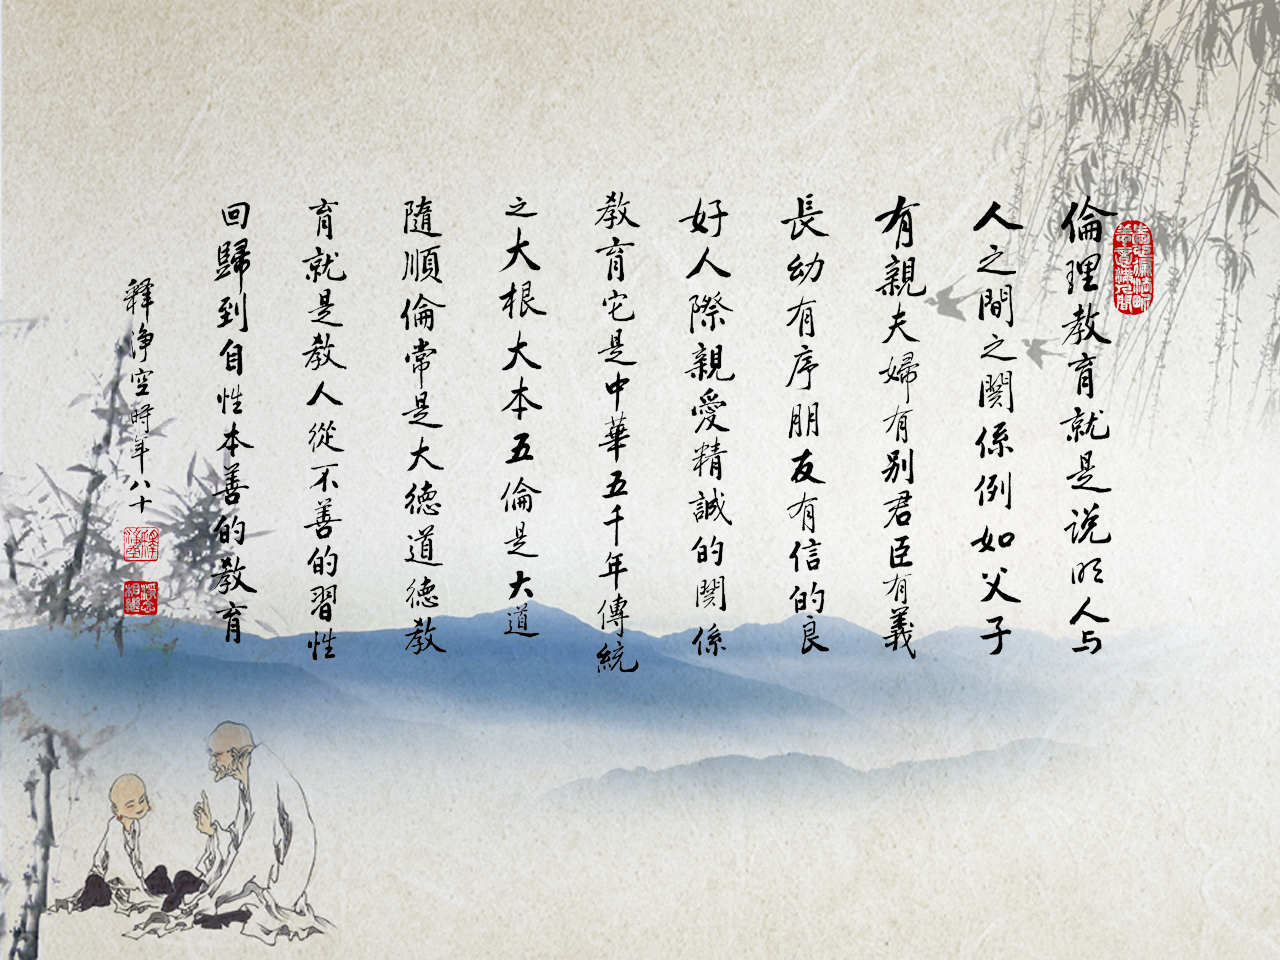 倫理教育就是说明人与
人之間之関係例如父子
有親夫婦有别君臣有義
長幼有序朋友有信的良
好人際親愛精誠的関係
教育它是中華五千年傳統
之大根大本五倫是大道
隨順倫常是大德道德教
育就是教人從不善的習性
回歸到自性本善的教育
釋淨空時年八十